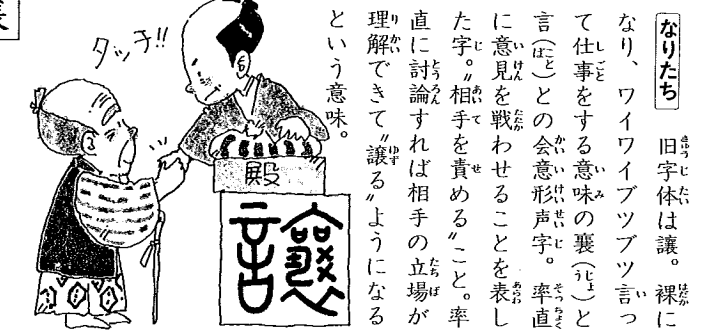 なりたち　旧字体は讓。裸に
なり、ワイワイブツブツ言っ
て仕事をする意味の襄(じょう)と
言(こと)との会意形声字。率直
に意見を戦わせることを表し
た字。〝相手を責める〟こと。率
直に討論すれば相手の立場が
理解できて〝譲る〟ようになる
という意味。
タッチ!!
殿